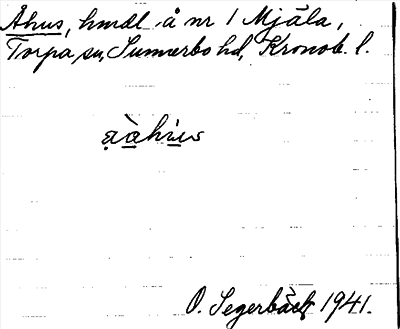 Åhus, hmdl å nr 1 Mjäla,
Torpa sn, Sunnerbo hd, Kronob. l.
O. Segerbäck 1941.